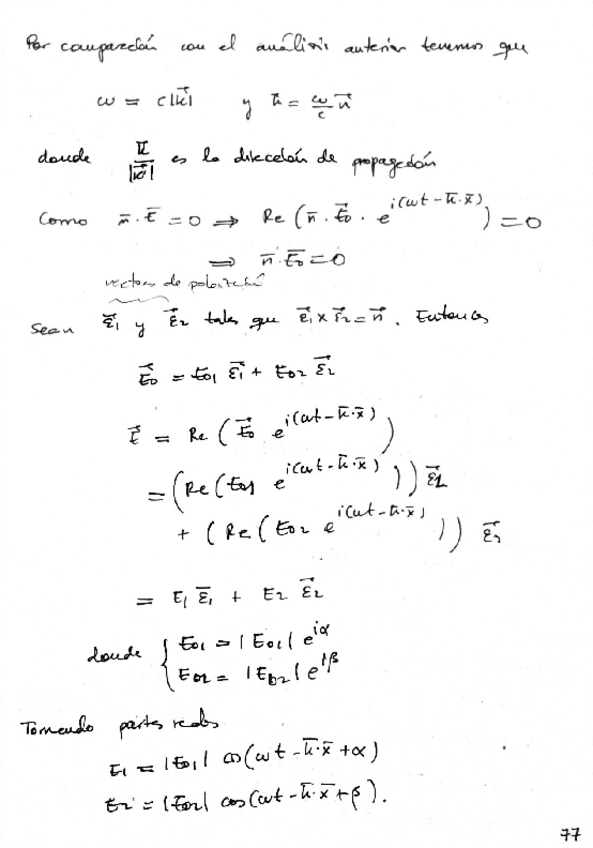 Por comparación con el análisis anterior tenemos que
ω = c|k⃗| y k̄ = ω/c n⃗
donde k̄/|k⃗| es la dirección de propagación
Como n̄·Ē = 0 ⇒ Re(n̄·E⃗₀·e^{i(ωt-k̄·x̄)}) = 0
⇒ n̄·Ē₀ = 0
vectores de polarización
Sean ε⃗₁ y ε⃗₂ tales que ε⃗₁×ε⃗₂ = n⃗. Entonces
E⃗₀ = E₀₁ ε⃗₁ + E₀₂ ε⃗₂
E⃗ = Re(E⃗₀ e^{i(ωt-k̄·x̄)})
= (Re(E₀₁ e^{i(ωt-k̄·x̄)})) ε⃗₁
+ (Re(E₀₂ e^{i(ωt-k̄·x̄)})) ε⃗₂
= E₁ ε̄₁ + E₂ ε⃗₂
donde { E₀₁ = |E₀₁| e^{iα}
E₀₂ = |E₀₂| e^{iβ}
Tomando partes reales
E₁ = |E₀₁| cos(ωt - k̄·x̄ + α)
E₂ = |E₀₂| cos(ωt - k̄·x̄ + β).
77